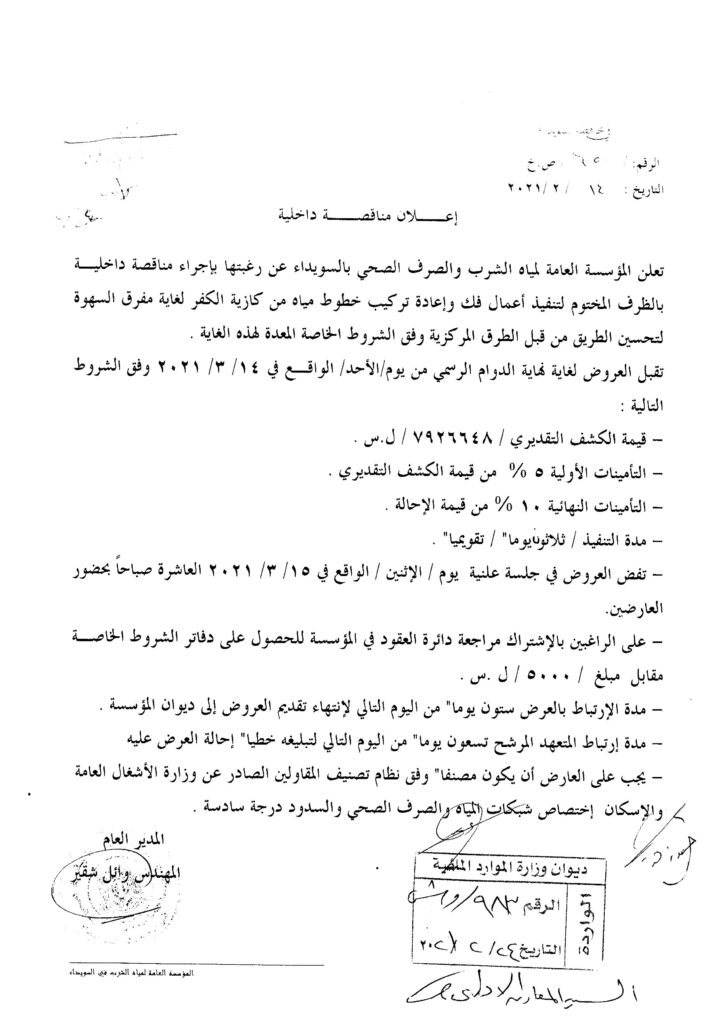 الرقم: / ص.خ
التاريخ : ١٤ / ٢ /٢٠٢١
إعــــلان مناقصــــة داخلية
تعلن المؤسسة العامة لمياه الشرب والصرف الصحي بالسويداء عن رغبتها بإجراء مناقصة داخليــة
بالظرف المختوم لتنفيذ أعمال فك وإعادة تركيب خطوط مياه من كازية الكفر لغاية مفرق السهوة
لتحسين الطريق من قبل الطرق المركزية وفق الشروط الخاصة المعدة لهذه الغاية .
تقبل العروض لغاية نهاية الدوام الرسمي من يوم/الأحد/ الواقـــع في ١٤ /٣ /٢٠٢١ وفق الشروط
التالية :
– قيمة الكشف التقديري / ٧٩٢٦٦٤٨ / ل.س .
– التأمينات الأولية ٥ % من قيمة الكشف التقديري .
– التأمينات النهائية ١٠ % من قيمة الإحالة .
– مدة التنفيذ / ثلاثون يوما" / تقويميا" .
– تفض العروض في جلسة علنية يوم / الإثنين / الواقع في ١٥ /٣ /٢٠٢١ العاشرة صباحاً بحضور
العارضين.
– على الراغبين بالإشتراك مراجعة دائرة العقود في المؤسسة للحصول على دفاتر الشروط الخاصــة
مقابل مبلغ / ٥٠٠٠ / ل .س .
– مدة الإرتباط بالعرض ستون يوما" من اليوم التالي لإنتهاء تقديم العروض إلى ديوان المؤسسة .
– مدة إرتباط المتعهد المرشح تسعون يوما" من اليوم التالي لتبليغه خطيا" إحالة العرض عليه
– يجب على العارض أن يكون مصنفا" وفق نظام تصنيف المقاولين الصادر عن وزارة الأشغال العامة
والإسكان إختصاص شبكات المياه والصرف الصحي والسدود درجة سادسة .
المدير العام
المهندس وائل شقير
ديوان وزارة الموارد المائية
الواردة
الرقم ٩٨٣/و
التاريخ ٢٤/ ٢ /٢٠٢١
السيد المعاون الاداري
المؤسسة العامة لمياه الشرب في السويداء